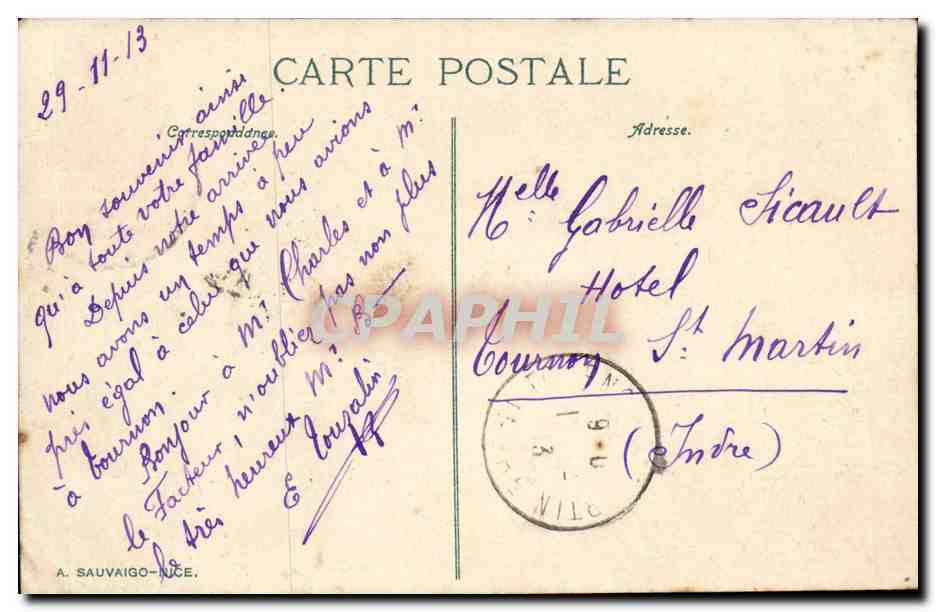 CARTE POSTALE
Correspondance.
29-11-13
Bon souvenir ainsi
qu'à toute votre famille.
Depuis notre arrivée
nous avons un temps à peu
près égal à celui que nous avions
à Tournon.
Bonjour à Mr Charles et à Mr
le Facteur, n'oublier pas non plus
le très heureux Mr B
E Touzalin
A. SAUVAIGO-NICE.
Adresse.
Melle Gabrielle Sicault
Hotel
Tournon St Martin
(Indre)
CPAPHIL